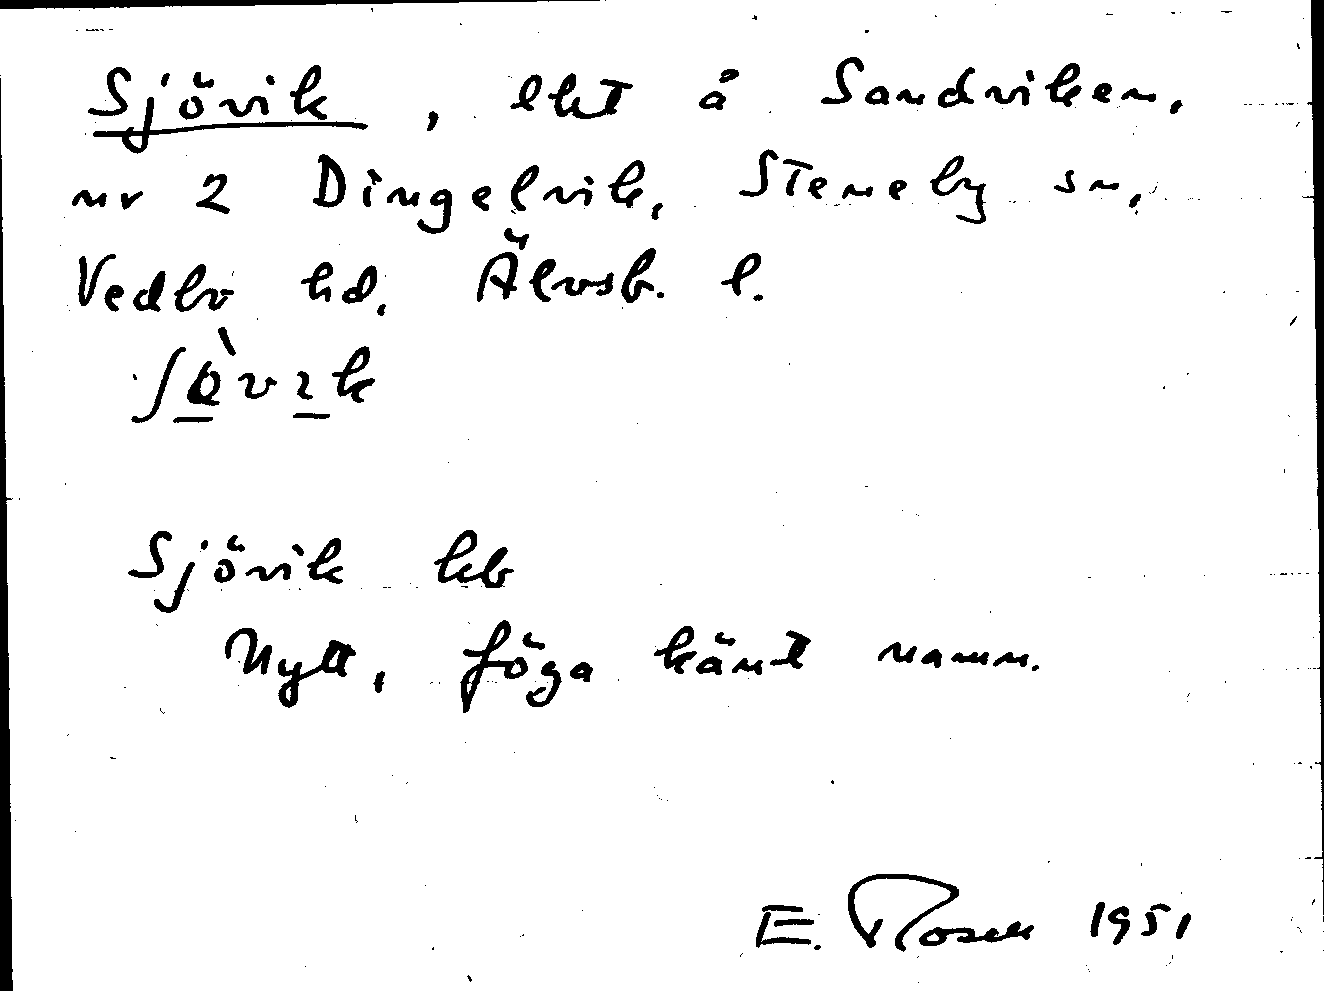 Sjövik, lht å Sandviken,
nr 2 Dingelvik, Steneby sn,
Vedbo hd. Älvsb. l.
ʃòvık
Sjövik kb
Nytt, föga känt namn.
E. Rosell 1951